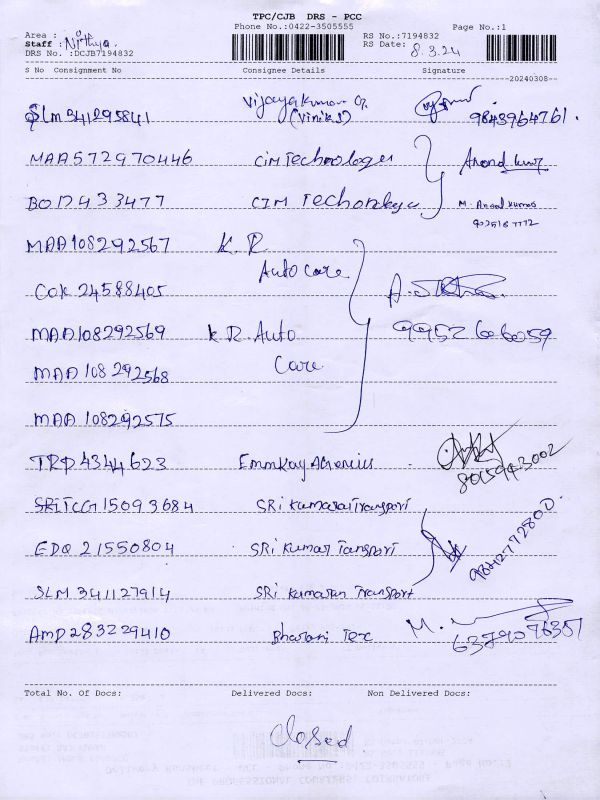 TPC/CJB DRS - PCC
Phone No.:0422-3505555 Page No.:1
Area : RS No.:7194832
Staff : Nithya. RS Date: 8.3.24
DRS No. :DCJB7194832
S No Consignment No Consignee Details Signature
20240308
SLM341295841 Vijayakumar G. 9843964761.
(Vinik)
MAA572970446 CIM Technologies Anand kumar
BOD433477 CIM Techonlogy M. Anand kumar
MAA108292567 K.R
Auto care
COK 24588405
MAA108292569 K R. Auto 9952606059
MAA 108292568 Care
MAA 108292575
TRP4344623 Emmkay Agencies 8015943002
SRITCG15093684 SRi Kumaran Transport
EDQ 21550804 SRi Kumar Tansport 9842772800.
SLM 341127914 SRi Kumaran Transport
AMD283229410 Bharani Tex M.
Total No. Of Docs: Delivered Docs: Non Delivered Docs:
Closed